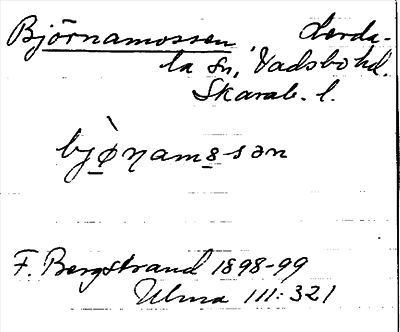 Björnamossen, Lerda-
la sn, Vadsbo hd.
Skarab. l.
bjø̀ṇamo̲-sən
F. Bergstrand 1898-99
Ulma 111:321